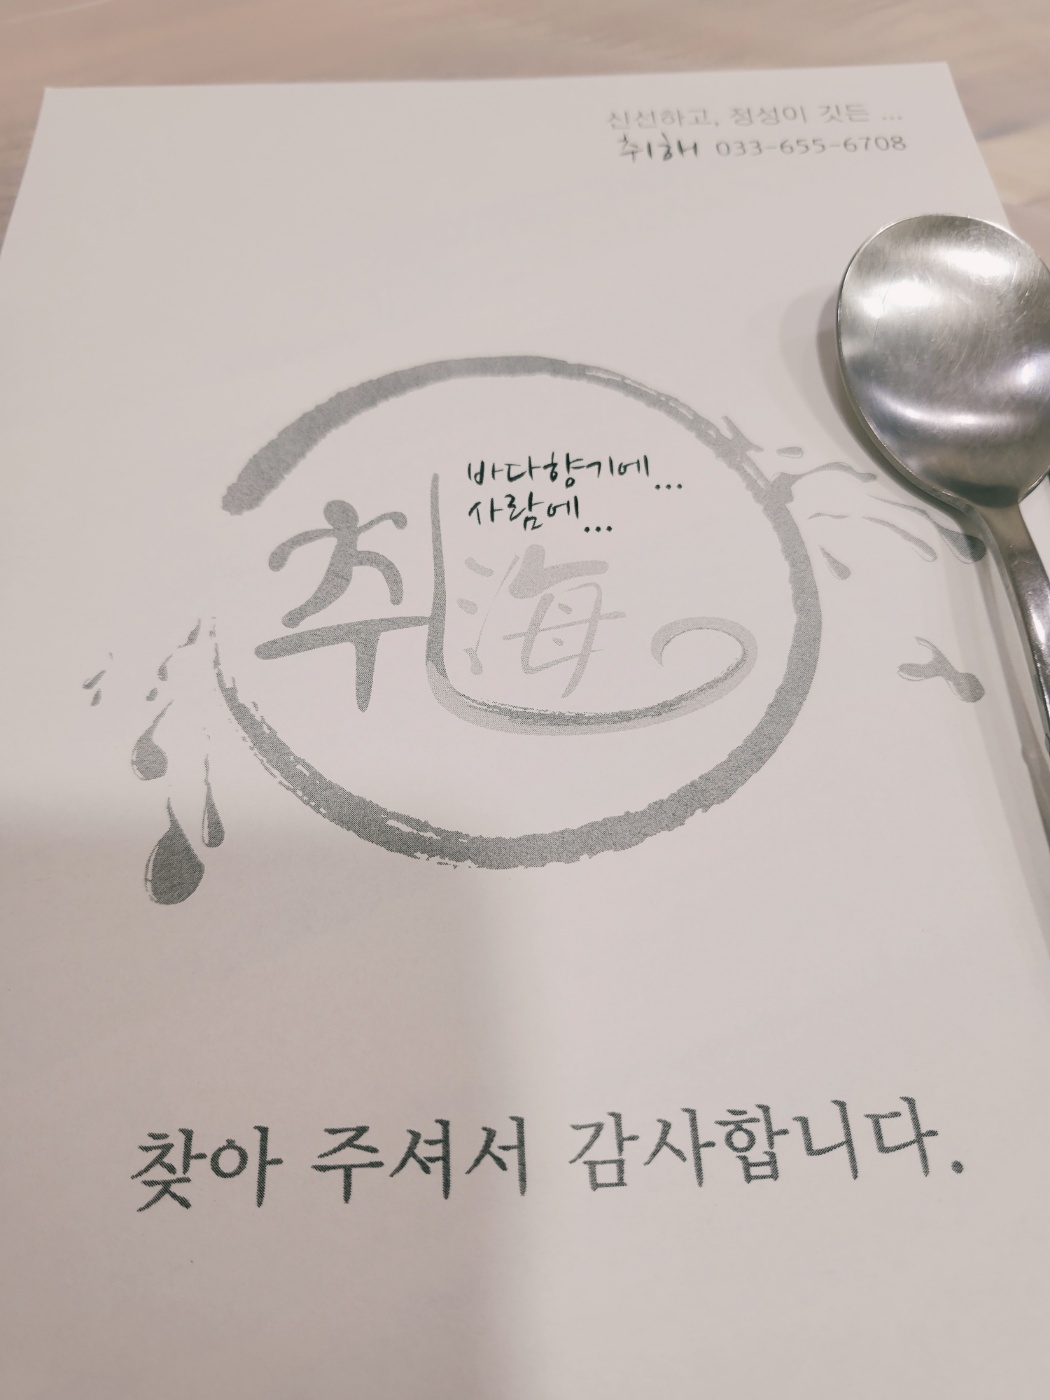 신선하고, 정성이 깃든 ...
취해 033-655-6708
바다향기에...
사람에...
취海
찾아 주셔서 감사합니다.